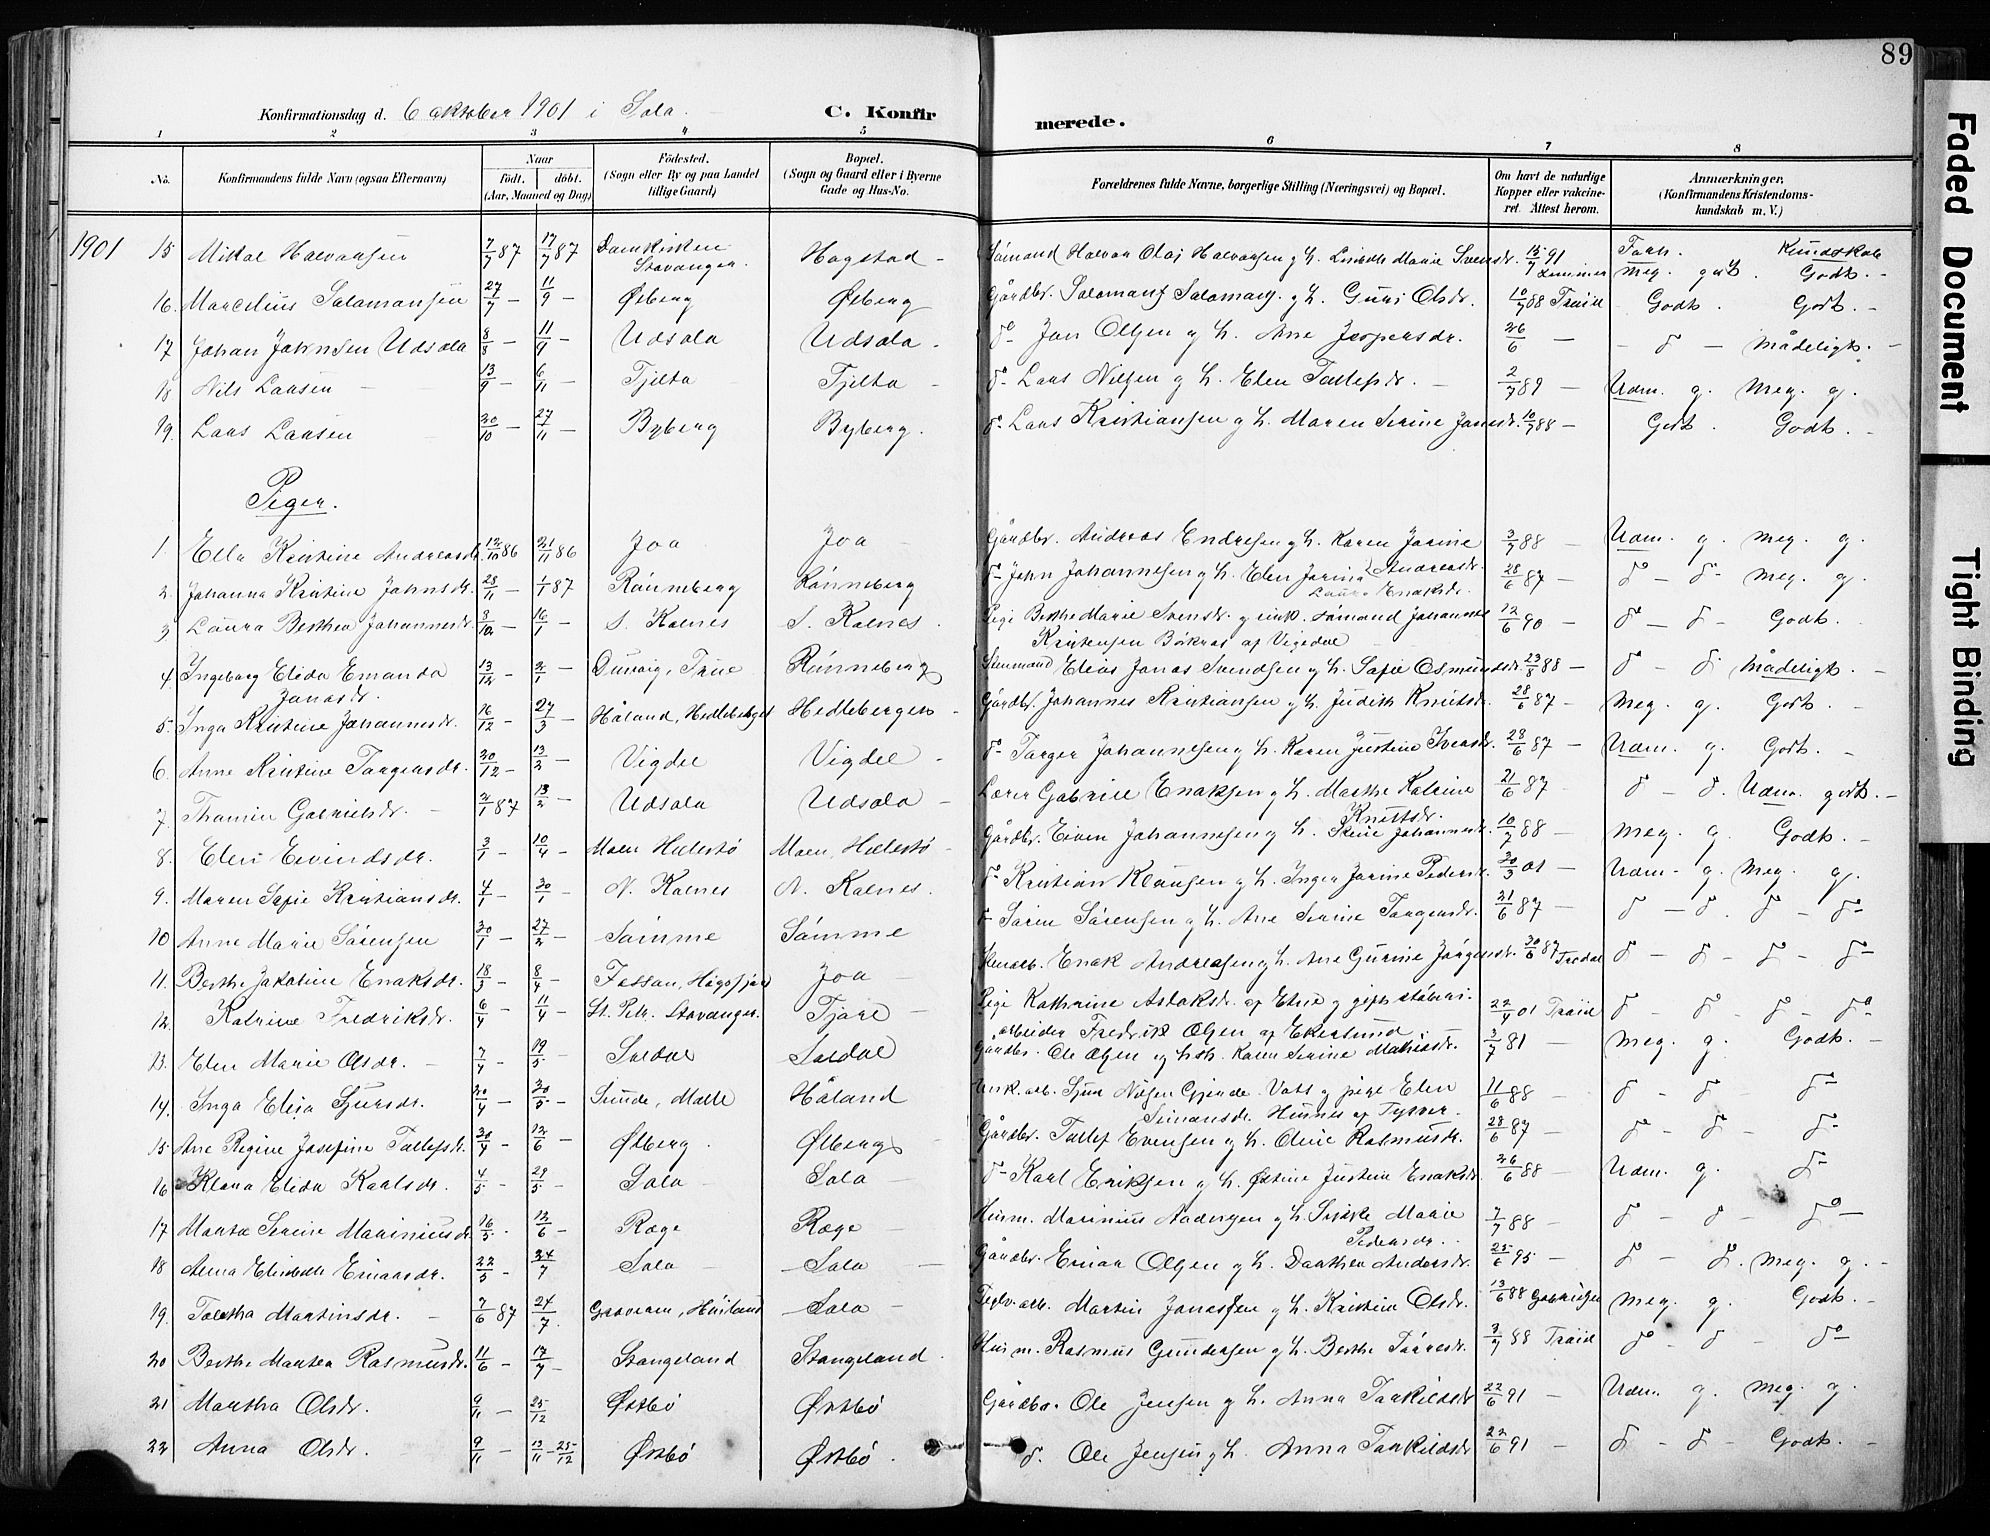 89
Konfirmationsdag d. 6 oktober 1901 i Sola. C. Konfirmerede.
1 2 3 4 5 6 7 8
No. Konfirmandens fulde Navn (ogsaa Efternavn) Naar født. døbt. (Aar, Maaned og Dag) Fødested. (Sogn eller By og paa Landet tillige Gaard) Bopæl. (Sogn og Gaard eller i Byerne Gade og Hus-No. Forældrenes fulde Navne, borgerlige Stilling (Næringsvei) og Bopæl. Om havt de naturlige Kopper eller vakcineret. Attest herom. Anmærkninger, (Konfirmandens Kristendomskundskab m. V.)
1901 15 Mikal Halvorsen 7/7 87 17/7 87 Domkirken Stavanger. Hogstad - Sømand Halvor Olaj Halvorsen g h. Lisbeth Marie Svensdr. 15/7 91 Forh. Kundskab Meg. godt. Godt. -
16. Marcelius Salamonsen 27/7 - 11/9 - Ølberg Ølberg Gårdbr. g h. Guri Olsdr. 10/7 88 Godt. Godt. -
17 Johan Johnsen Udsola 8/8 - 11/9 - Udsola Udsola - do Jon Olsen g h. Ane Jespersdr. 26/6 - - d - Mådeligt. -
18 Nils Larsen 13/9 - 6/11 - Tjelta Tjelta - do Lars Nilsen g h. Elen Tollefsdr. - 2/7 89 - Udm. g. Meg. g.
19. Lars Larsen 30/10 - 27/11 - Byberg Byberg. do Lars Kristiansen g h. Maren Serine Jonesdr. 10/7 88 - Godt. Godt. -
Piger.
1 Ella Kristine Andreasdr. 12/10 86 21/11 86 Joa Joa - Gårdbr. Andreas Endresen g h. Karen Jorine 3/7 88 - Udm. g. Meg. g.
2. Johanna Kristine Johnsdr. 28/11 - 1/1 87 Rønneberg Rønneberg do John Johannesen g h. Elen Jorina Andreasdr. 28/6 87 - d - d - Meg. g.
3 Laura Berthea Johannesdr. 8/12 - 16/1 - S. Kolnes S. Kolnes. Pige Berthe Marie Svensdr. g enk. sømand Johannes Kristensen Bokras af Vigedal 12/6 90 - d - d - Godt.
4. Ingeborg Elida Emanda Jonasdr. 13/12 - 2/1 - Rønneberg Stenmand Elias Jonas Svendsen g h. Sofie Osmundsdr. 23/8 88 - d - d Mådeligt. -
5. Inga Kristine Johannesdr. 16/12 - 27/3 - Håland, Hedleberget Hedleberget - Gårdbr. Johannes Kristiansen g h. Judith Knutsdr. 28/6 87 - Meg. g. Godt. -
6. Anne Kristine Torgersdr. 30/12 - 13/2 - Vigdel Vigdel - do Torger Johannesen g h. Karen Justine Iversdr. 28/6 87 - Udm. g. Godt. -
7. Thomine Gabrielsdr. - 2/1 87 13/2 - Udsola Udsola - Lærer Gabriel Enaksen g h. Marthe Katrine Knutsdr. 21/6 87 - d - d. Udm. godt. -
8. Elen Eivindsdr. 3/1 - 10/4 - Moen, Hålestø Moen, Hålestø - Gårdbr. Eiven Johannesen g h. Johannesdr. 10/7 88 - Meg. g. Godt. -
9. Maren Sofie Kristiansdr. 4/1 - 30/1 - N. Kolnes N. Kolnes. do Kristian Klausen g h. Inger Jorine Pedersdr. 30/3 01 - Udm. - g. Meg. g.
10 Anne Marie Sørensen 30/1 - 27/2 - Sømme Sømme do Søren Sørensen g h. Ane Serine Torgersdr. 21/6 87 - d - d. d - d -
11. Berthe Jakobine Enaksdr. 18/3 - 8/4 - Fossan, Høgsfjord Joa Stenarb. Enak Andreasen g h. Ane Gurine Jørgensdr. 30/6 87 d - d - d - d -
12. Katrine Fredriksdr. 6/4 - 11/4 - St. Petr. Stavanger. Tjora - Pige Kathrine Aslaksdr. af Etne g gift arbeider Fredrik Olsen af Ekersund 22/4 01 d - d - d - do
13. Elen Marie Olsdr. - 7/4 - 19/5 - Soldal Soldal Gårdbr. Ole Olsen g h. Karen Serine Mathiasdr. 3/7 81 - Meg. g. Godt. -
14. Inga Elisa Sjursdr. 20/4 - 30/5 - Håland Unk. arb. Sjur Nilsen Gjerde Vats g pige Elen Simonsdr. Hinnes af Tysvær. 11/6 88 - d - d - d -
15 Ane Regine Josefine Tollefsdr. 30/4 - 12/6 - Ølberg. Ølberg Gårdbr. Tollef Evensen g h. Oline Rasmusdr. 28/6 87 - d - d - d -
16 Klara Elida Karlsdr. 4/5 - 29/5 - Sola - Sola - do Karl Eriksen g h. Østine Justine Enaksdr. 26/6 88 - Udm. g. d -
17 Marta Serine Mariniusdr. 16/5 - 12/6 - Ræge Ræge Husm. Marinius Aadersen g h. Marie Pedersdr. 7/7 88 - d - d - do -
18 Anna Elisabeth Einarsdr. 22/5 - 24/7 - Sola - Sola - Gårdbr. Einar Olsen g h. Dorthea Andersdr. 25/6 95 - d - d. Meg. g. -
19. Taletha Martinsdr. - 7/6 87 24/7 - Sola - Teglv. arb. Martin Jonassen g h. Kristine Olsdr. 13/6 88 Gabrielsen Meg. g. Godt. -
20 Berthe Martea Rasmusdr. 11/6 - 17/7 - Stangeland Stangeland. Husm. Rasmus Gundersen g h. Berthe Tøresdr. 3/7 88 do d - do -
21 Martha Olsdr. 9/11 - 25/12 Østbø Østbø Gårdbr. Ole Jensen g h. Anna Torkildsdr. 22/6 91 - Udm. g. Meg. g.
22 Anna Olsdr. - 9/11 - 13/11 - 25/12 Østbø Østbø. d. Ole Jensen g h. Anna Torkildsdr. 22/6 91 - d - d - Godt. -
Faded Document
Tight Binding